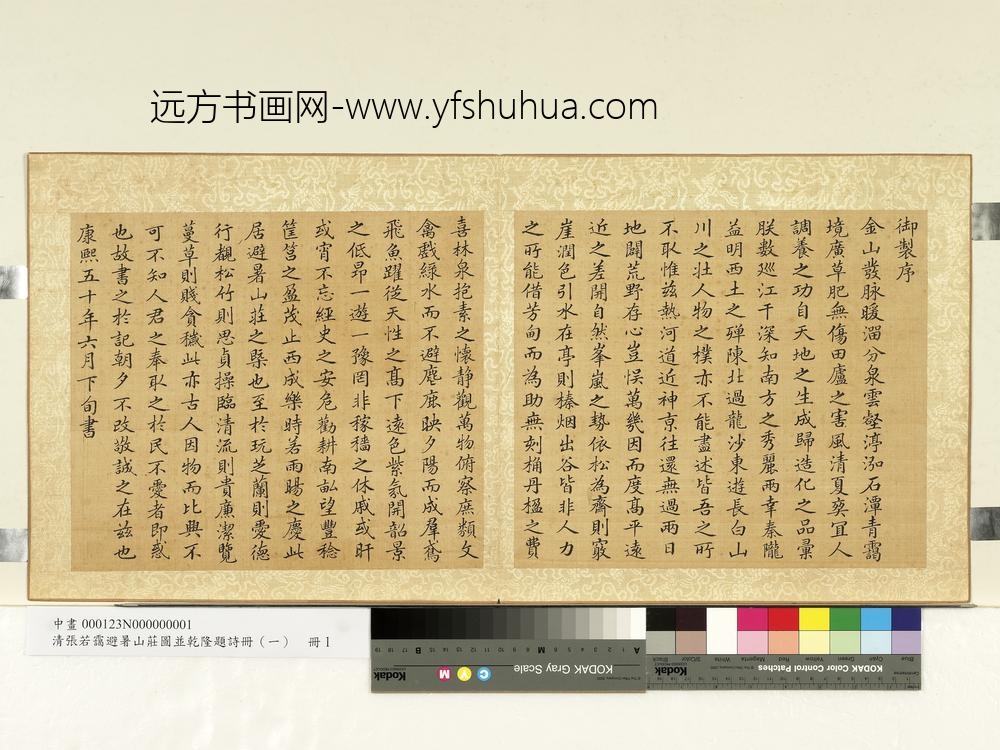 远方书画网-www.yfshuhua.com
御製序
金山發脉暖溜分泉雲壑渟泓石潭青靄
境廣草肥無傷田廬之害風清夏奭宜人
調養之功自天地之生成歸造化之品彙
朕數廵江干深知南方之秀麗兩幸秦隴
益明西土之殫陳北過龍沙東遊長白山
川之壮人物之樸亦不能盡述皆吾之所
不取惟茲熱河道近神京往還無過兩日
地闢荒野存心豈悮萬幾因而度髙平遠
近之差開自然峯嵐之勢依松為齋則竅
崖潤色引水在亭則榛烟出谷皆非人力
之所能借芳甸而為助無刻桷丹楹之費
喜林泉抱素之懷静觀萬物俯察庶類文
禽戲緑水而不避麀鹿映夕陽而成羣鳶
飛魚躍從天性之髙下逺色紫氛開韶景
之低昻一遊一豫罔非稼穡之休戚或旰
或宵不忘經史之安危勸耕南畝望豐稔
筐筥之盈茂止西成樂時若雨暘之慶此
居避暑山莊之槩也至於玩芝蘭則愛徳
行覩松竹則思貞操臨清流則貴廉潔覽
蔓草則賤貪穢此亦古人因物而比興不
可不知人君之奉取之於民不愛者即惑
也故書之於記朝夕不改敬誠之在茲也
康熙五十年六月下旬書
中畫 000123N000000001
清張若靄避暑山莊圖並乾隆題詩冊（一） 冊1
KODAK Gray Scale
Kodak
C Y M
A 1 2 3 4 5 6 M 8 9 10 11 12 13 14 15 B 17 18 19
KODAK Color Control Patches
Kodak
Blue Cyan Green Yellow Red Magenta White 3/Color Black